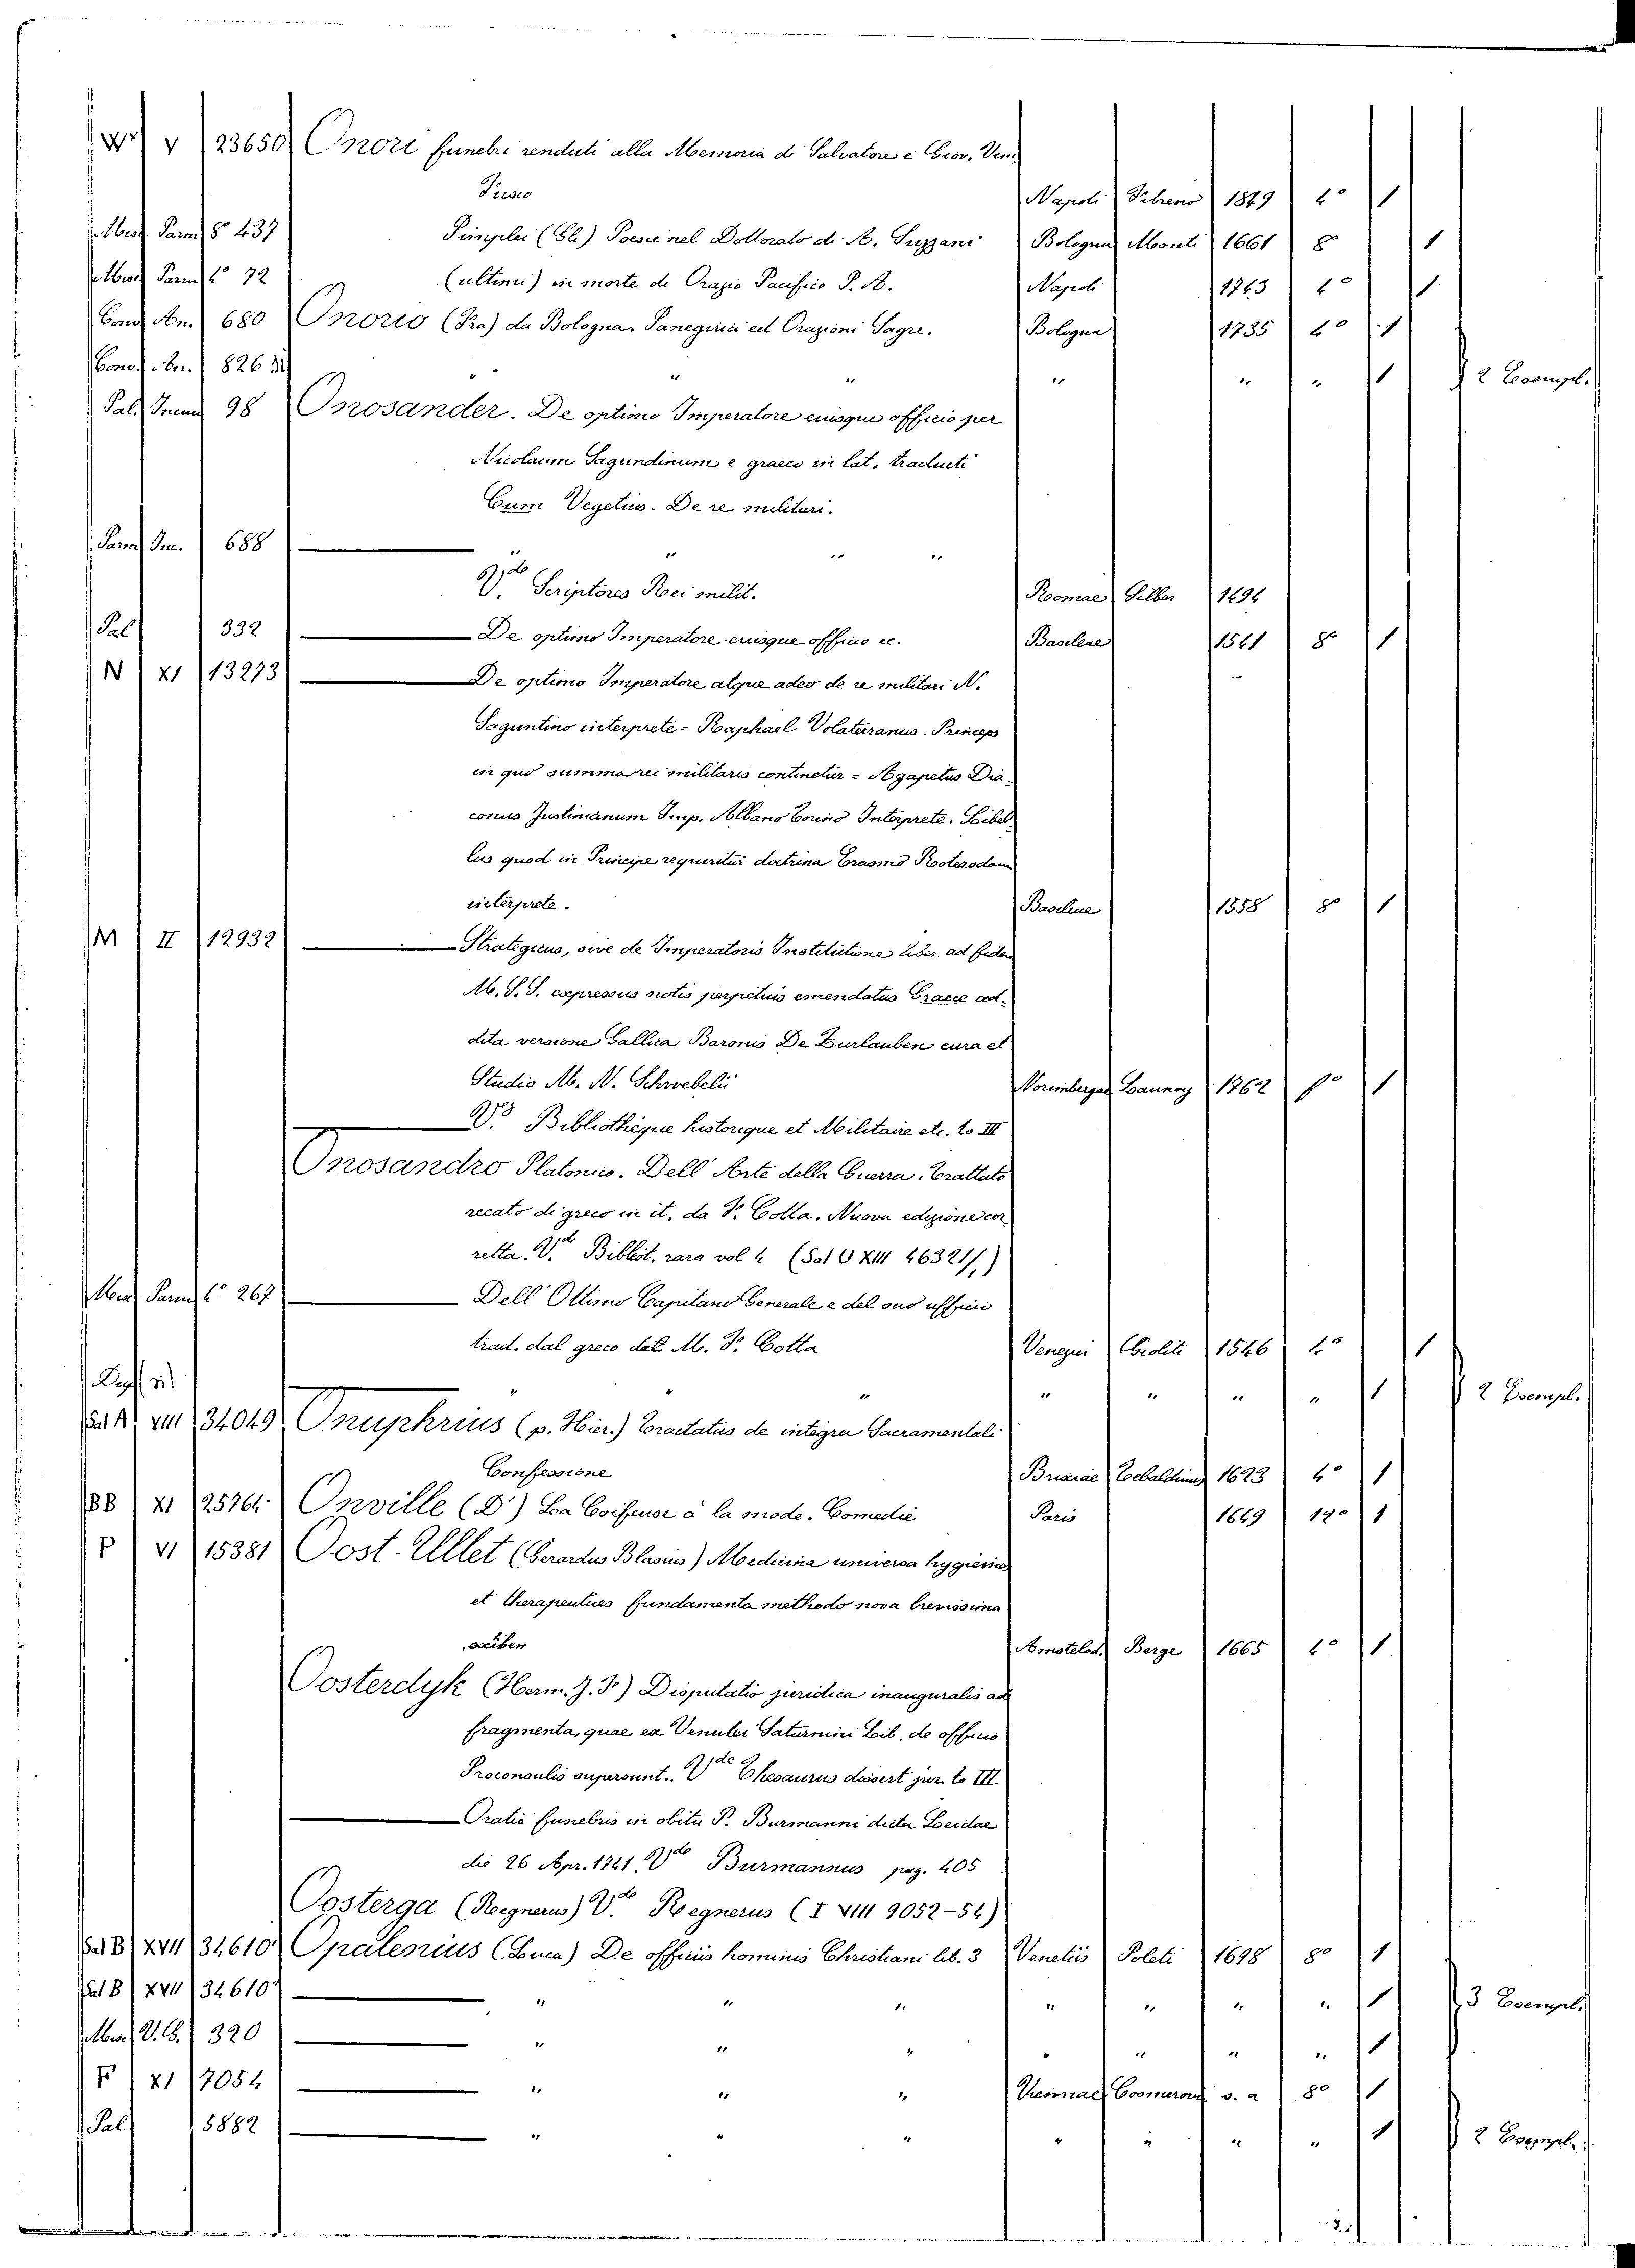 W V 23650 Onori funebri renduti alla Memoria di Salvatore e Giov. Vinc.
Fusco Napoli Fibreno 1849 4º 1
Misc. Parm. 8º 437 Simplei (Gli) Poesie nel Dottorato di A. Suzzani Bologna Monti 1661 8º 1
Misc. Parm. 4º 72 (ultimi) in morte di Orazio Pacifico P. A. Napoli 1743 4º 1
Conv. An. 680 Onorio (Fra) da Bologna. Panegirici ed Orazioni Sagre. Bologna 1735 4º 1
Conv. An. 826 " " " " " " 1 2 Esempl.
Pal. Incun 98 Onosander. De optimo Imperatore eiusque officio per
Nicolaum Sagundinum e graeco in lat. traducti
Cum Vegetius. De re militari.
Parm. Inc. 688 " " " "
V.de Scriptores Rei milit. Romae Silber 1494
Pal 332 De optimo Imperatore eiusque officio ec. Basileae 1541 8º 1
N XI 13273 De optimo Imperatore atque adeo de re militari N.
Saguntino interprete = Raphael Volaterranus. Princeps
in quo summa rei militaris continetur = Agapetus Dia-
conus Justinianum Imp. Albano Torino Interprete. Libel-
lus quod in Principe requiritur doctrina Erasmo Roterodam
interprete. Basileae 1558 8º 1
M II 12932 Strategicus, sive de Imperatoris Institutione liber ad fidem
M. S. S. expressus notis perpetuis emendatus Graece ad-
dita versione Gallica Baronis De Zurlauben cura et
Studio M. N. Schwebelii Norimbergae Launoy 1762 fº 1
V.e Bibliothèque historique et Militaire etc. to III
Onosandro Platonico. Dell' Arte della Guerra. Trattato
recato di greco in it. da F. Cotta. Nuova edizione cor
retta. V.de Bibliot. rara vol 4 (Sal U XIII 46321/1)
Misc. Parm. 4º 267 Dell' Ottimo Capitano Generale e del suo ufficio
trad. dal greco da M. F. Cotta Venezia Gioliti 1546 4º 1
" " " " " " 1 2 Esempl.
Sal A VIII 34049 Onuphrius (p. Hier.) Tractatus de integra Sacramentali
Confessione Brixiae Tebaldinus 1623 4º 1
BB XI 25764 Onville (D') La Coifeuse à la mode. Comedie Paris 1649 12º 1
P VI 15381 Oost-Ullet (Gerardus Blasius) Medicina universa hygieines
et therapeutices fundamenta methodo nova brevissima
exiben Amstelod. Berge 1665 4º 1
Oosterdyk (Herm. J. F.) Disputatio juridica inauguralis ad
fragmenta, quae ex Venulei Saturnini Lib. de officio
Proconsulis supersunt. V.de Thesaurus dissert jur. to III
Oratio funebris in obitu P. Burmanni dicta Leidae
die 26 Apr. 1741. V.de Burmannus pag. 405
Oosterga (Regnerus) V.de Regnerus (I VIII 9052-54)
Sal B XVII 34610 Opalenius (Luca) De officiis hominis Christiani lib. 3 Venetiis Poleti 1698 8º 1
Sal B XVII 34610 " " " " " " " 1 3 Esempl.
Misc. V. C. 320 " " " " " " " 1
F XI 7054 " " " Viennae Cosmerov s. a 8º 1
Pal 5882 " " " " " " " 1 2 Esempl.